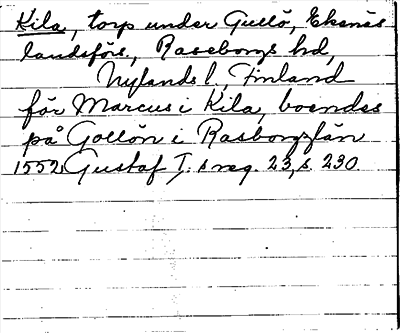 Kila, torp under Gullö, Ekenäs
landsförs., Raseborgs hd,
Nylands l, Finland
för Marcus i Kila, boendes
på Gollön i Rasborgzlän
1552 Gustaf I:s reg. 23, s. 230.